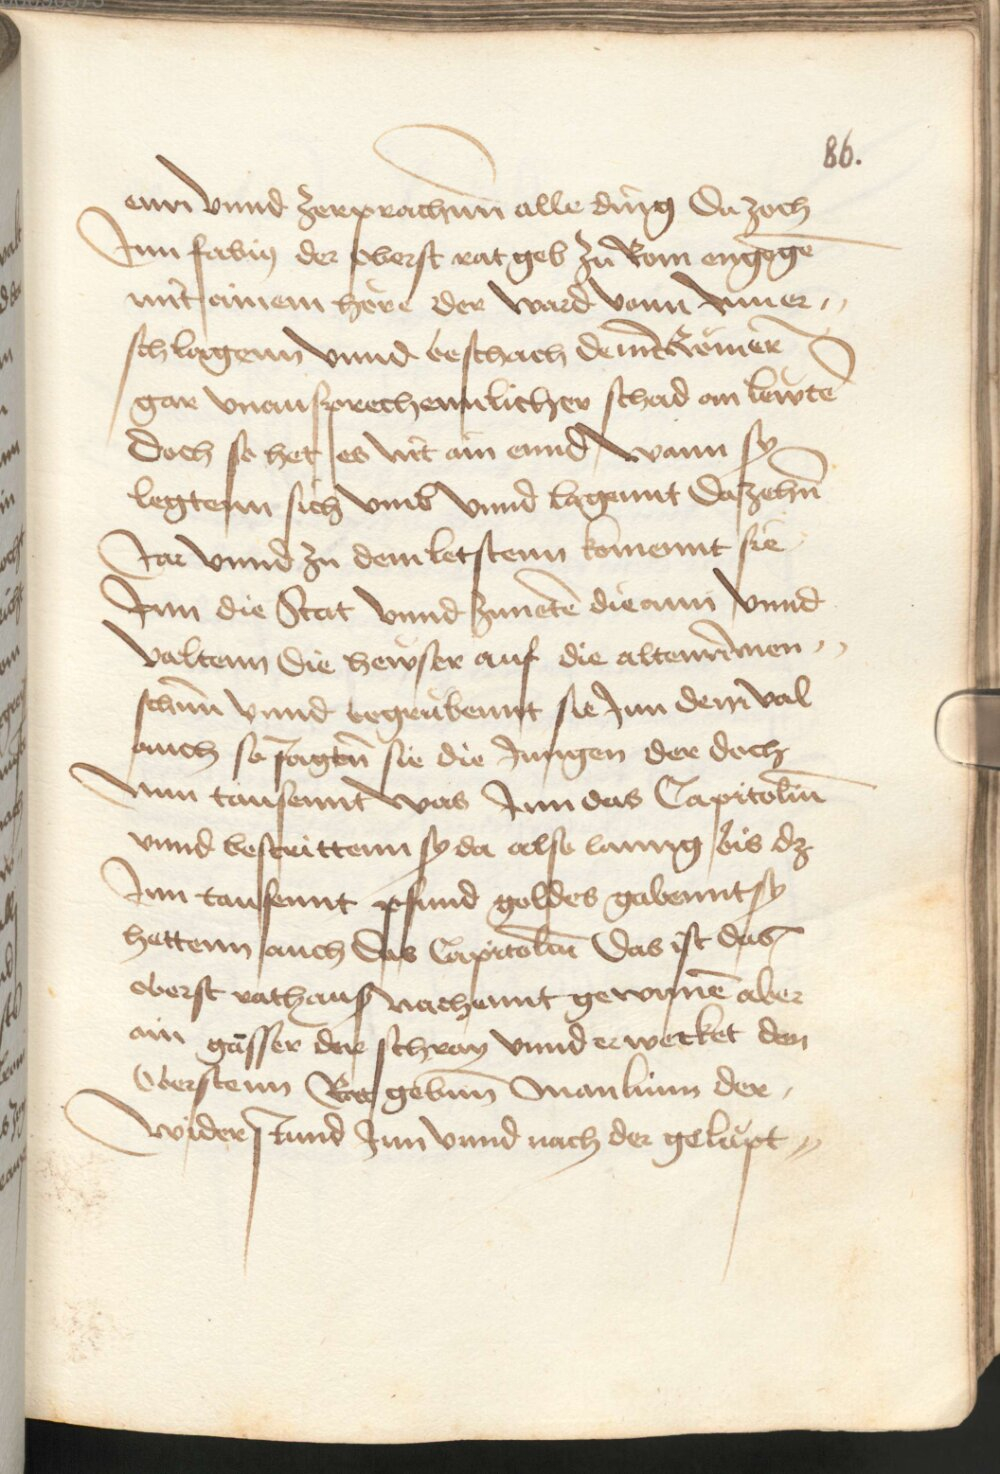 86.
enn vnnd zerprachnn alle ding Da zoch
Inn fabiꝯ der oberst rat geb zu Rom engegē
mit ainem here der ward vonn Inn er„
schlagenn vnnd beschach denn Römer
gar vnausprechennlicher schad an lewtē
Doch so het es nit ain ennd wann sy
legtenn sich vmb vnnd lagennt da zehn̄
Jar vnnd zu dem letstenn komennt sie
Inn die Stat vnnd zuntē die ann vnnd
valtenn die hewser auf die altenn men„
schnn vnnd begrubennt sie Inn dem val
auch so Jagtn̄ sie die Jungen der doch
Nun tausennt was Inn das Capitoliū
vnnd bestrittenn sy da also lanng bis dz
Inn tausennt pfund goldes gabennt sy
hettenn auch das Capitoliū Das ist das
oberst rathaus nachennt gewunē aber
ain gasser der schray vnnd erwecket den
Oberstenn Rat gebnn Manlium der
widerstund Inn vnnd nach der gelupt„